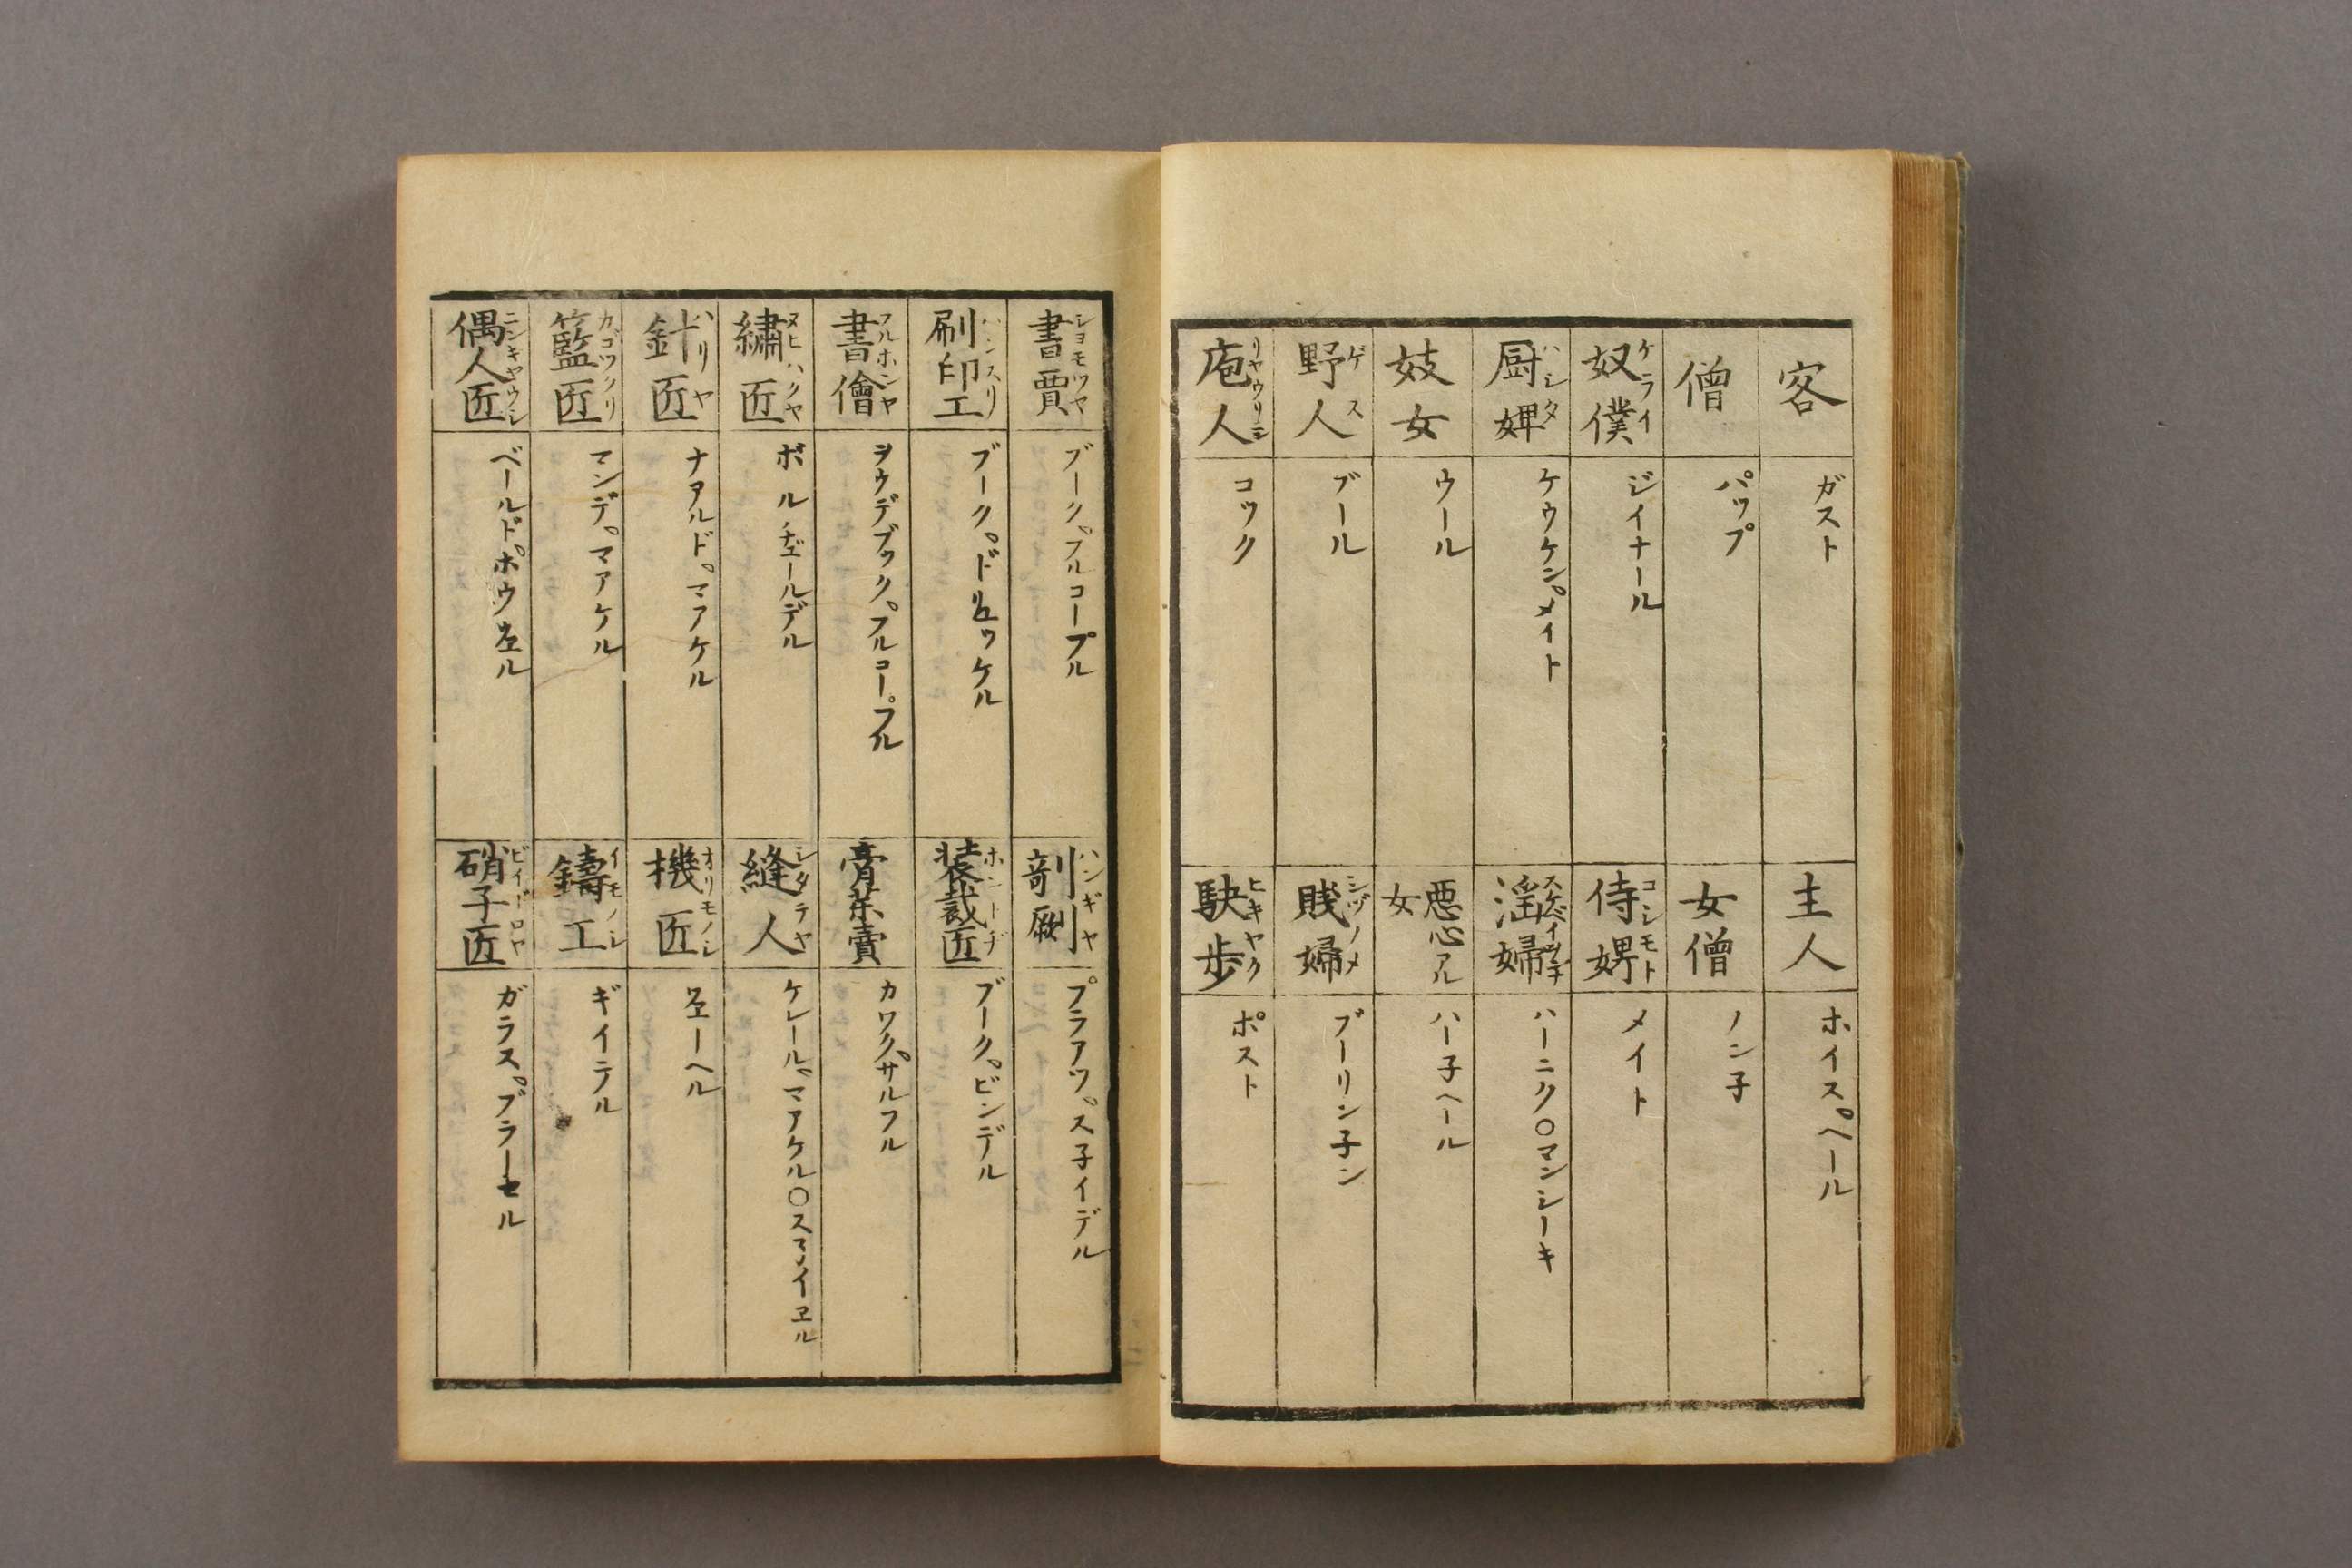 客 ガスト
主人 ホイス゜ヘール
僧 パップ
女僧 ノン子
奴僕 ケライ ジイナール
侍婢 コシモト メイト
厨婢 ハシタ ケウケン゜メイト
淫婦 ハーニク〇マンシーキ
妓女 ウール
悪心アル女 ハー子ヘール
野人 ゲス ブール
賎婦 シヅノメ ブーリン子ン
庖人 リヤウリシ コック
駃歩 ヒキヤク ポスト
書賈 シヨモツヤ ブーク゜フルコープル
剞劂 ハンギヤ プラアツ゜ス子イデル
刷印工 ハンスリ ブーク゜ドリュッケル
装裁匠 ホントヂ ブーク゜ビンデル
書儈 フルホンヤ ヲウデブック゜フルコープル
膏薬賣 カワク゜サルフル
繍匠 ヌヒハクヤ ボルヂェールデル
縫人 シタテヤ ケレール゜マアケル〇スネイヱル
針匠 ハリヤ ナアルド゜マアケル
機匠 オリモノシ ウェーヘル
籃匠 カゴツクリ マンデ゜マアケル
鑄工 イモノシ ギイテル
偶人匠 ニンキヤウシ ベールド゜ホウウェル
硝子匠 ビイドロヤ ガラス゜ブラーセル